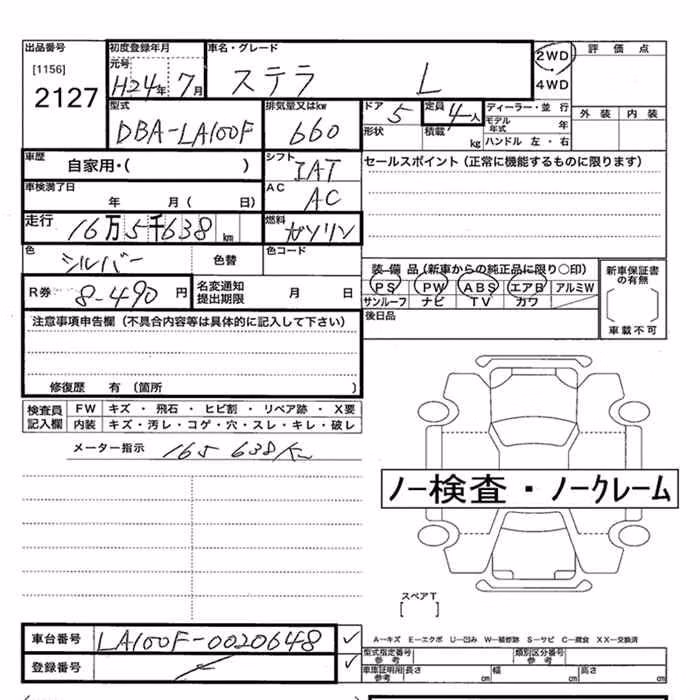 出品番号 初度登録年月 車名・グレード 2WD 評価点
[1156] 元号 4WD
2127 H24年 7月 ステラ L
型式 排気量又はkw ドア 5 定員 4人 ディーラー・並行 外装 内装
DBA-LA100F 660 形状 積載 kg モデル年式 年
ハンドル 左・右
車歴 自家用・( ) シフト IAT セールスポイント(正常に機能するものに限ります)
車検満了日 年 月( 日) AC AC
走行 16万5千638km 燃料 ガソリン
色 シルバー 色替 色コード
装備品(新車からの純正品に限り○印) 新車保証書の有無
R券 8-490円 名変通知提出期限 月 日 PS PW ABS エアB アルミW
サンルーフ ナビ TV カワ
注意事項申告欄(不具合内容等は具体的に記入して下さい) 後日品 車載不可
修復歴 有(箇所 )
検査員記入欄 FW キズ・飛石・ヒビ割・リペア跡・X要
内装 キズ・汚レ・コゲ・穴・スレ・キレ・破レ
メーター指示 165638km
ノー検査・ノークレーム
スペアT
[ ]
車台番号 LA100F-0020648 ✓ A−キズ E−エクボ U−凹み W−補修跡 S−サビ C−腐食 XX−交換済
登録番号 ✓ 型式指定番号 参考 類別区分番号 参考
車庫証明用 参考 長さ cm 幅 cm 高さ cm